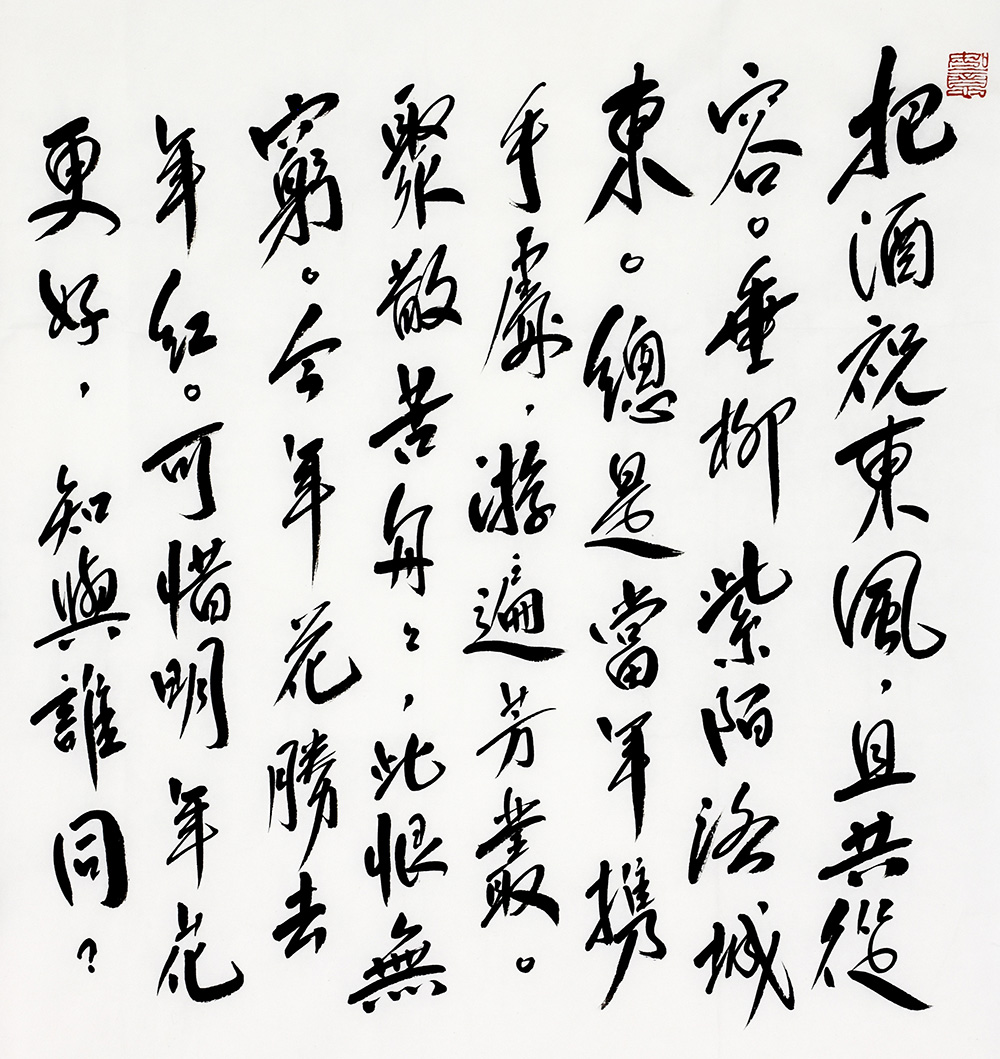 把酒祝東風，且共從
容。垂柳紫陌洛城
東。總是當年攜
手處，游遍芳叢。
聚散苦匆々，此恨無
窮。今年花勝去
年紅。可惜明年花
更好，知與誰同？